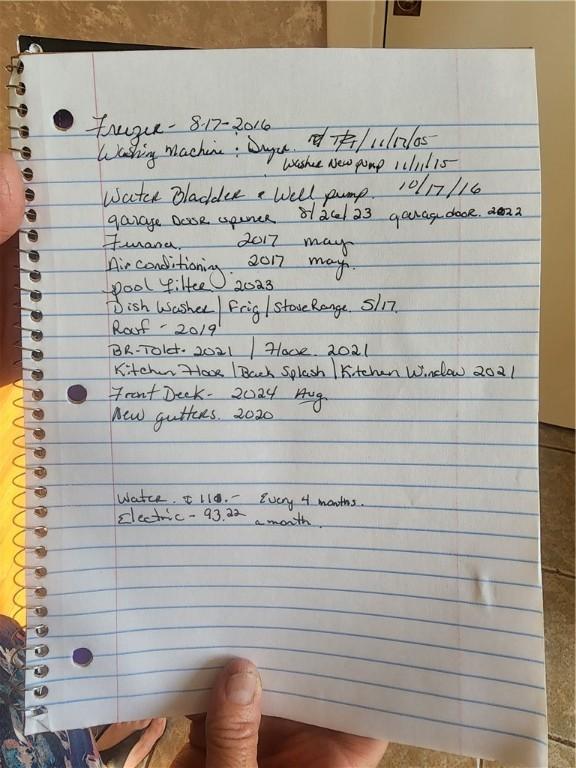 Freezer - 8-17-2016
Washing Machine : Dryer. 11/17/05
Washer New pump 11/11/15
Water Bladder & Well pump. 10/17/16
garage Door opener 8/26/23 garage door. 2022
Furnana. 2017 may
Air conditioning. 2017 may.
pool Filter 2023
Dish Washer / Frig / Stove Range. 5/17.
Roof - 2019
BR-Toilet. 2021 / Floor. 2021
Kitchen Floor / Back Splash / Kitchen Window 2021
Front Deck - 2024 Aug
New gutters. 2020
Water. $ 110.- Every 4 months.
Electric - 93.22 a month.